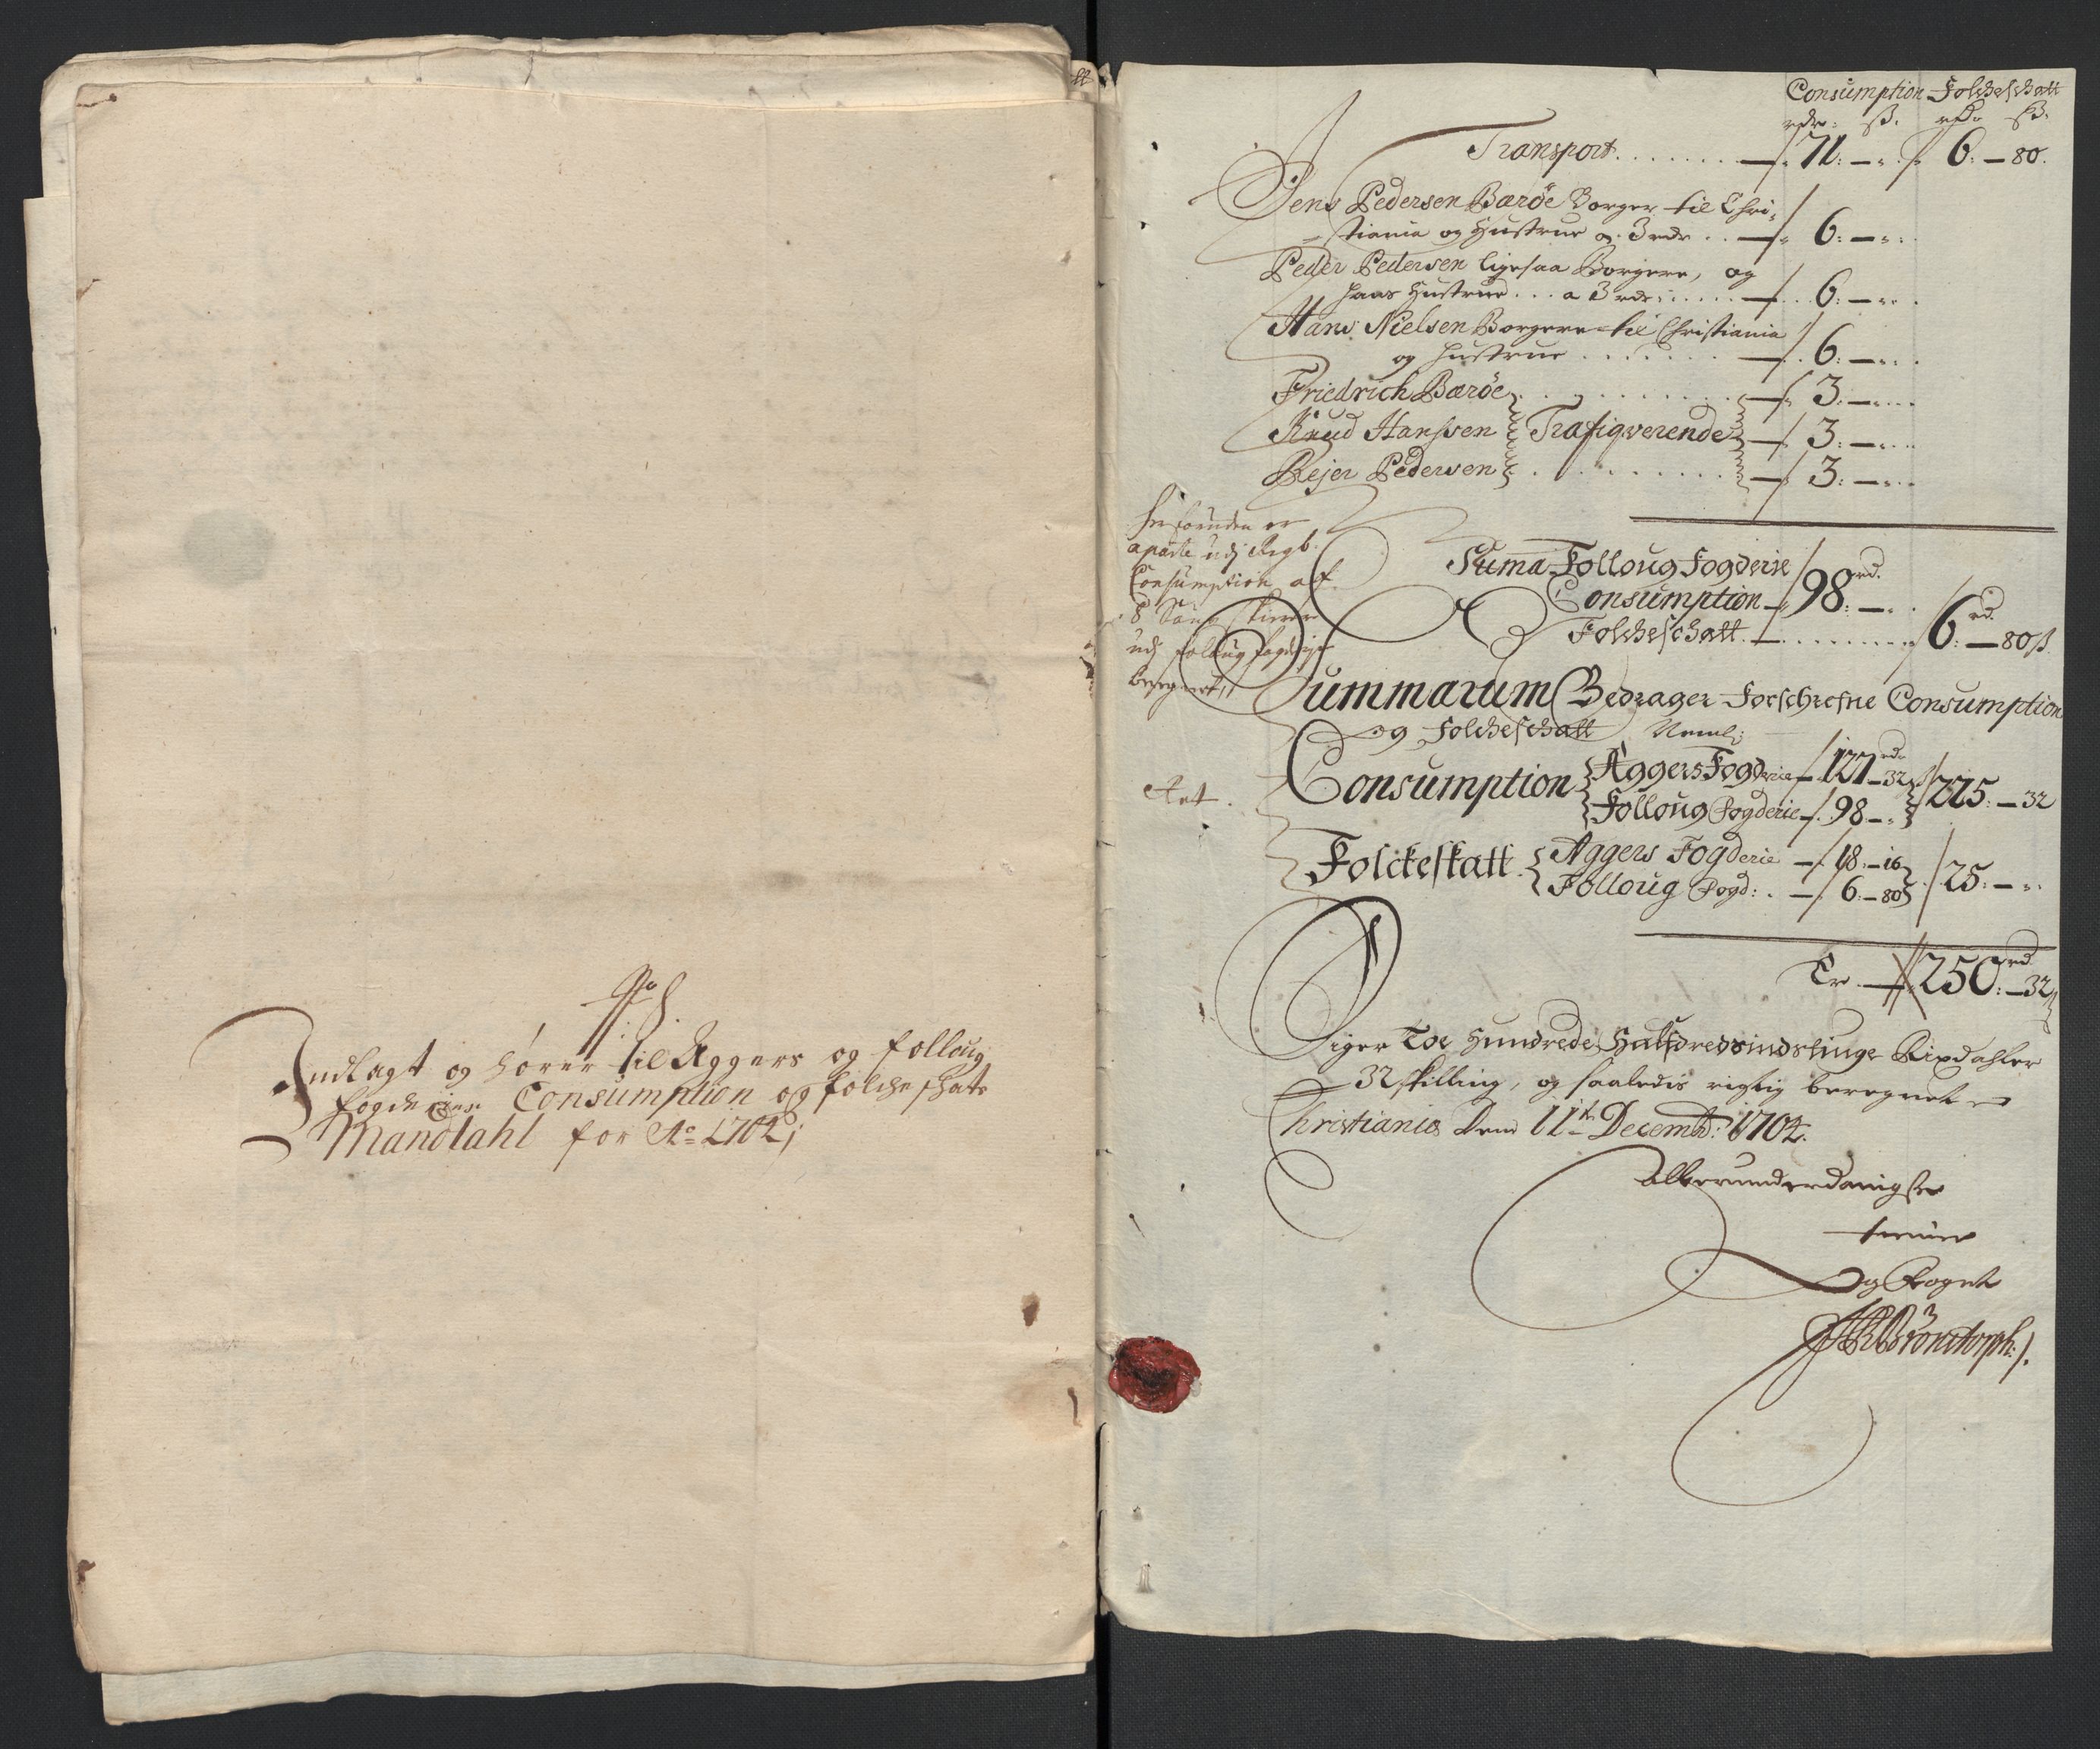 Indlagt og hører til Aggers og folloug
fogderiers Consumption og folcheschats
Mandtahl for Ao 1704;
Consumption Folcheschatt
rdr: ß. rdr ß.
Transport . . . . . . . 71: — 6: — 80.
Jens Pedersen Barøe Borger til Chri-
stiania og Hustrue a 3 rdr . . 6: —
Peder Pedersen ligesaa Borgere, og
hans Hustrue . . . a 3 rdr . . . . 6: —
Hans Nielsen Borgere til Christiania
og hustrue . . . . . . . 6: —
Friedrich Barøe . . . . . . . 3: —
Knud Hanssen Trafiqverende 3: —
Rejer Pedersen . . . . . . . 3: —
Herforuden er
aparte udj Regb.
Consumption af
8 Saug skierere
udj folloug fogderie
beregnet //
Suma Folloug Fogderie
Consumption 98 rd: —
Folcheschatt . . . . . . . 6 rd: — 80 ß
Summarum Bedrager Forschrefne Consumption
og Folcheschatt Neml:
Consumption Aggers Fogderie 127 rd — 32
Folloug Fogderie 98 — 225: — 32
Folckeskatt Aggers Fogderie 18: — 16
Folloug Fogd: 6: — 80 25: —
Er 250 rd: — 32 ß
Siger Toe Hundrede Halfdredsindstiuge Rixdahler
32 skilling, og saaledis rigtig beregnet
Christiania Dend 11te Decembr: 1704.
allerunderdanigste
tienner
og Foget